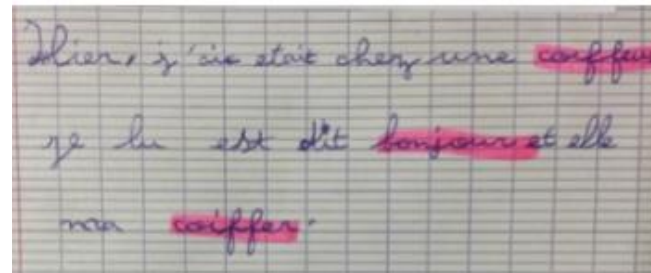 Hier, j'ai etait chez une coiffeus
je lu est dit bonjour et elle
ma coiffer.